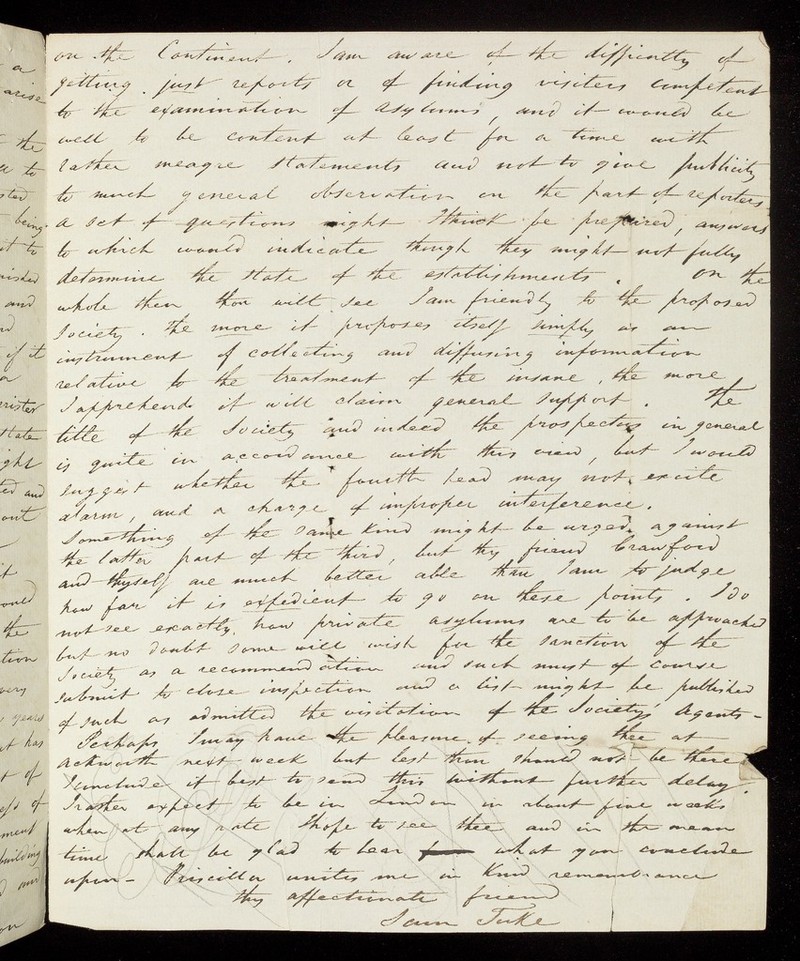 on the Continent. I am aware of the difficulty of
getting just reports or of finding visiters competent
to the examination of asylums, and it would be
well to be content at least for a time with
rather meagre statements and not to give publicity
to much general observation on the part of reporters
a set of questions might I think be prepared, answers
to which would indicate though they might not fully
determine the state of the establishments. On the
whole then thou wilt see I am friendly to the proposed
Society. The more it proposes itself simply as an
instrument of collecting and diffusing information
relative to the treatment of the insane, the more
I apprehend it will claim general support. The
title of the Society and indeed the prospectus in general
is quite in accordance with this view, but I would
suggest whether the fourth head may not excite
alarm, and a charge of improper interference.
Something of the same kind might be urged against
the latter part of the third, but thy friend Crawford
and thyself are much better able than I am to judge
how far it is expedient to go on these points. I do
not see exactly how private asylums are to be approached
but no doubt some will wish for the sanction of the
Society as a recommendation and such must of course
submit to close inspection and a list might be published
of such as admitted the visitation of the Society's Agents -
Perhaps I may have the pleasure of seeing thee at
Ackworth next week but lest thou should not be there
I conclude it best to send this without further delay.
I rather expect to be in London in about five weeks
when at any rate I hope to see thee and in the mean
time shall be glad to hear what you conclude
upon - Priscilla unites me in kind remembrance
thy affectionate friend
Sam Tuke
a
arise
the
to
being
it to
and
if it
state
and
out
it
would
the
tion
very
years
at has
of
of
ment
building
and